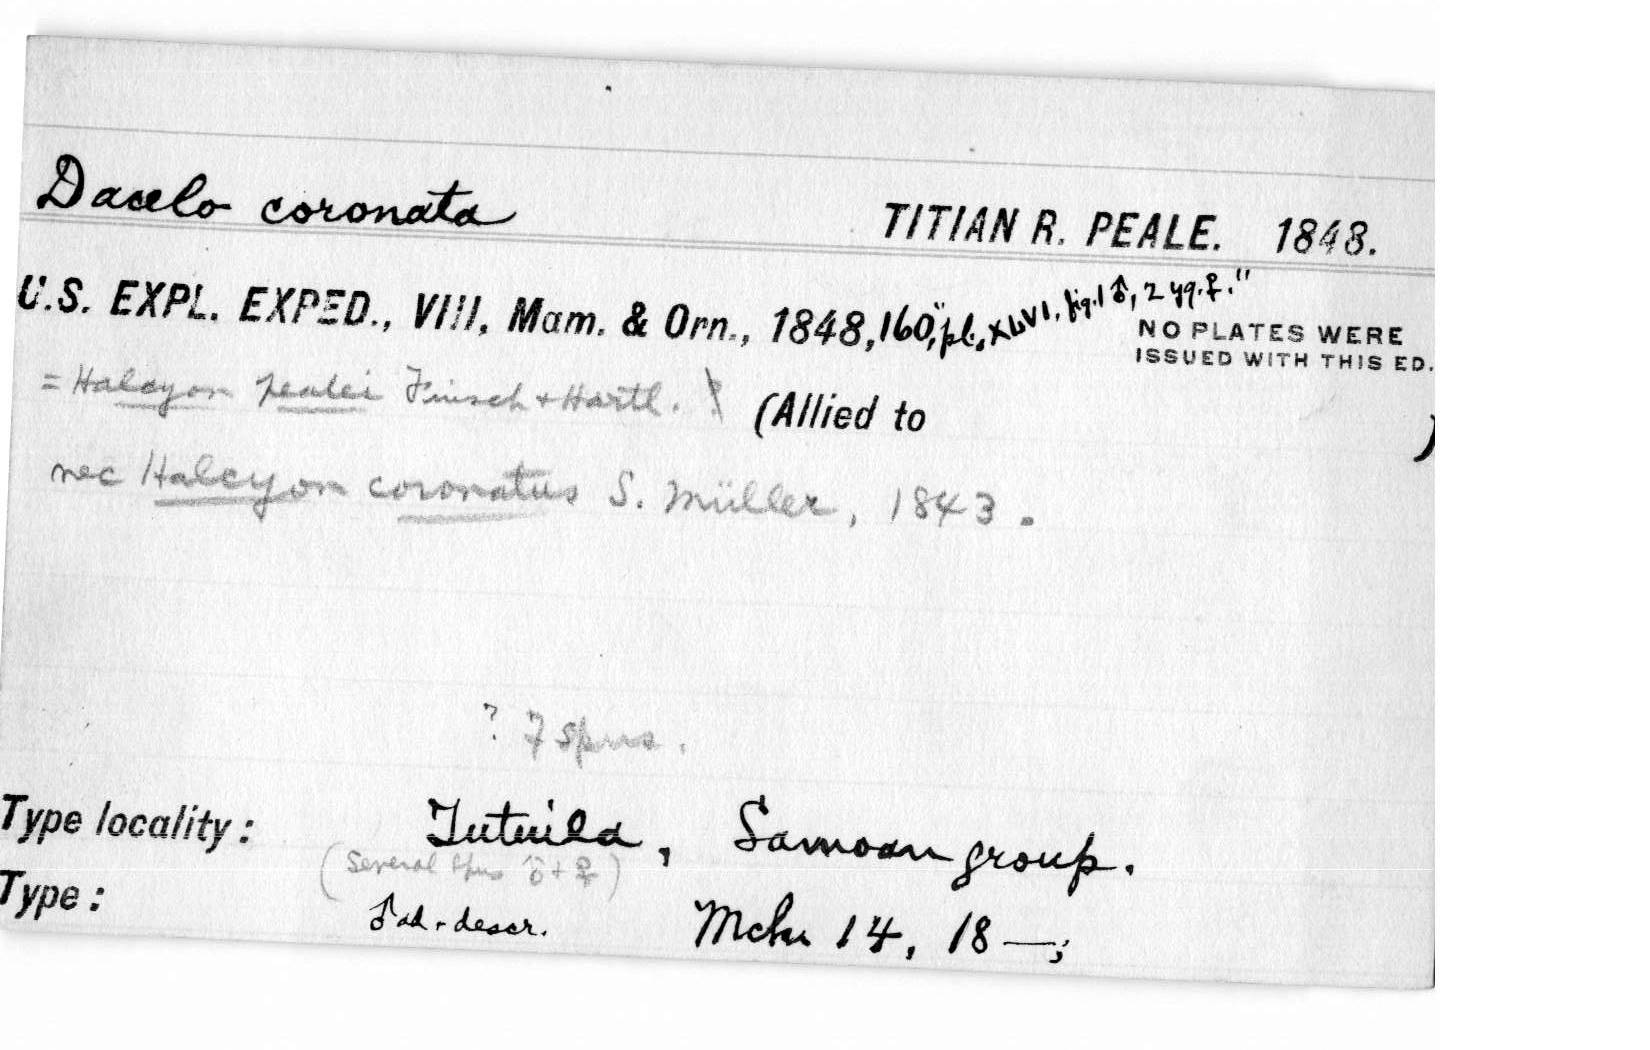 Dacelo coronata TITIAN R. PEALE. 1848.
U.S. EXPL. EXPED., VIII, Mam. & Orn., 1848, 160, "pl. XLVI. fig. 1 ♂, 2 yg. ♀."
NO PLATES WERE
ISSUED WITH THIS ED.
= Halcyon pealei Finsch + Hartl. (Allied to )
nec Halcyon coronatus S. Müller, 1843.
? 7 spms.
Type locality: Tutuila, Samoan group.
(several spms ♂ + ♀)
Type: ♂ ad. descr. Mch 14, 18—;